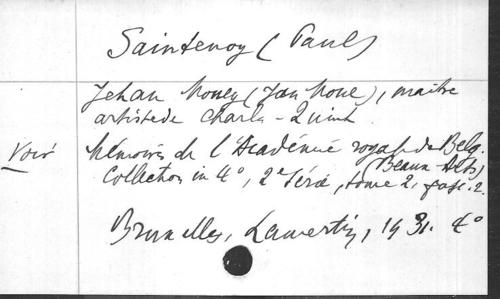 Saintenoy (Paul)
Jehan Money (Jan Mone), maître
artiste de Charles-Quint
Voir Mémoires de l'Académie royale de Belg.
(Beaux-Arts)
Collection in 4°, 2e série, tome 2, fasc. 2.
Bruxelles, Lamertin, 1931. 4°